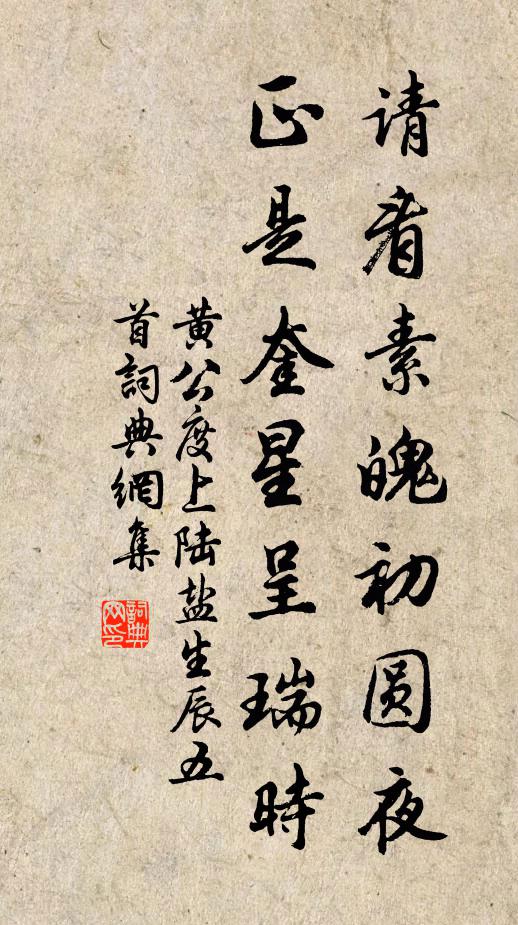 请看素魄初圆夜
正是奎星呈瑞時
黄公度上陆盐生辰五
首詞典網集
詞典網印